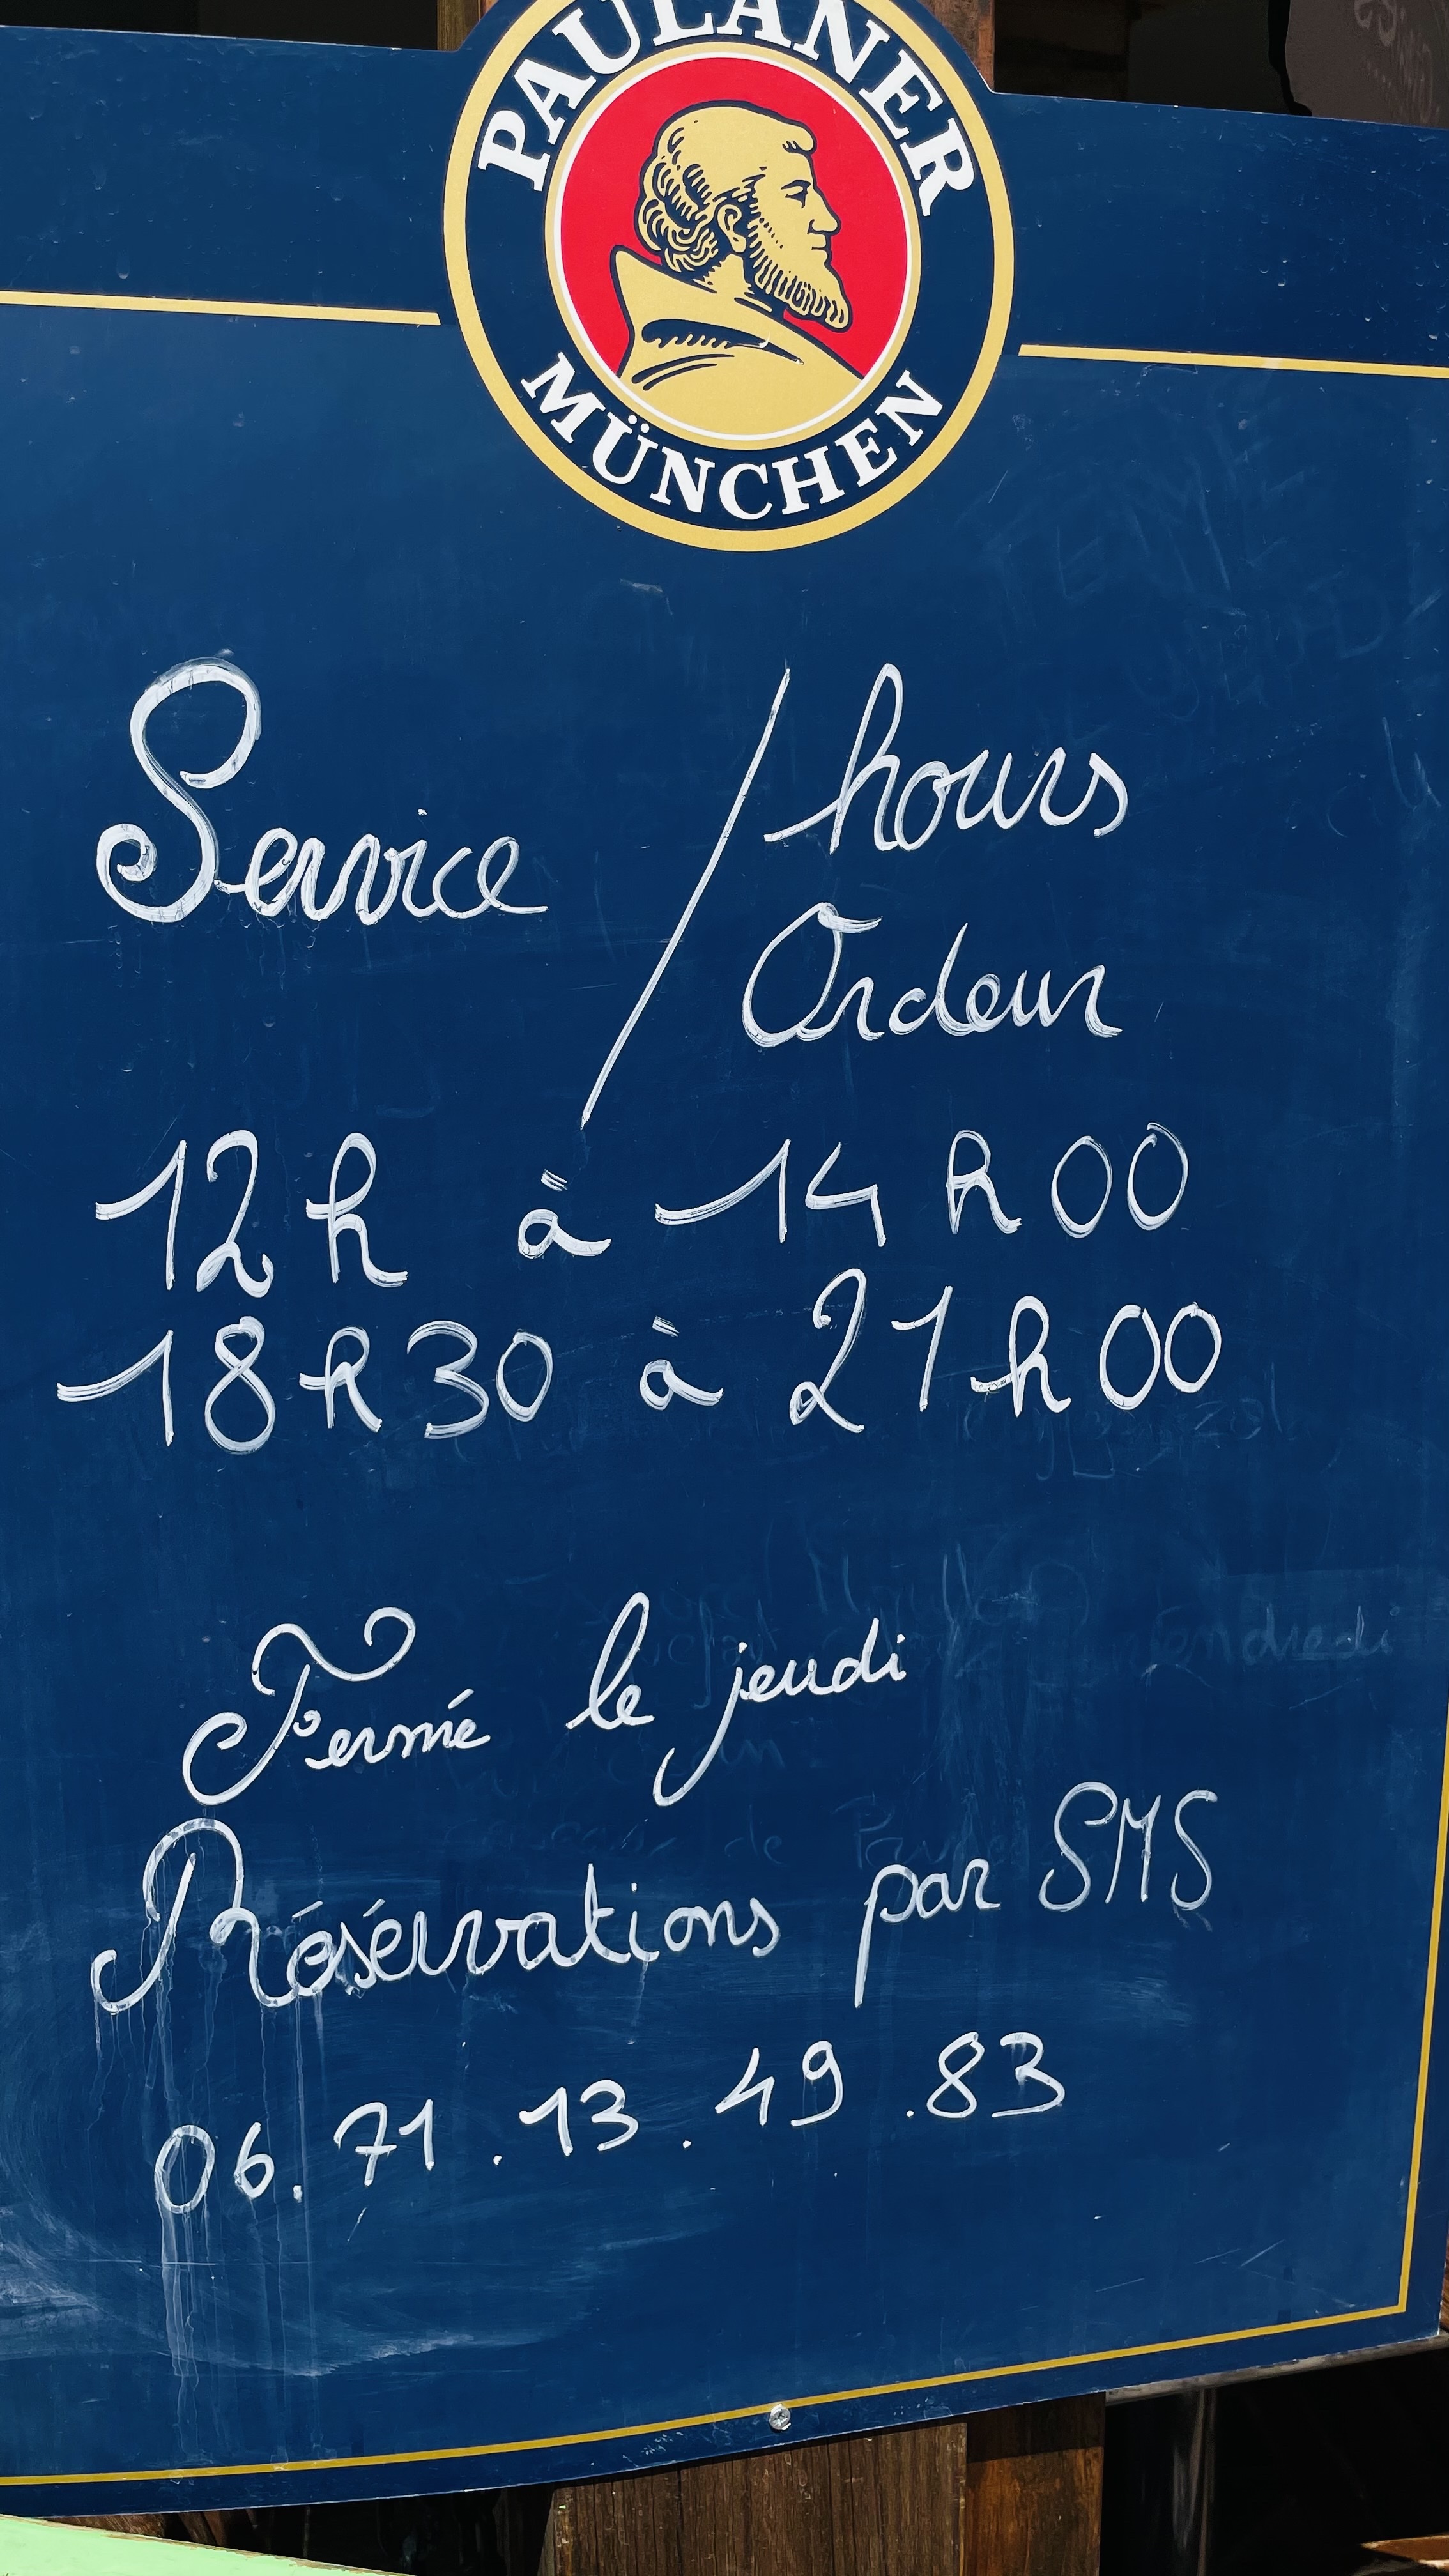 PAULANER
MÜNCHEN
Service / hours
Ordeur
12h à 14h00
18h30 à 21h00
Fermé le jeudi
Réservations par SMS
06.71.13.49.83